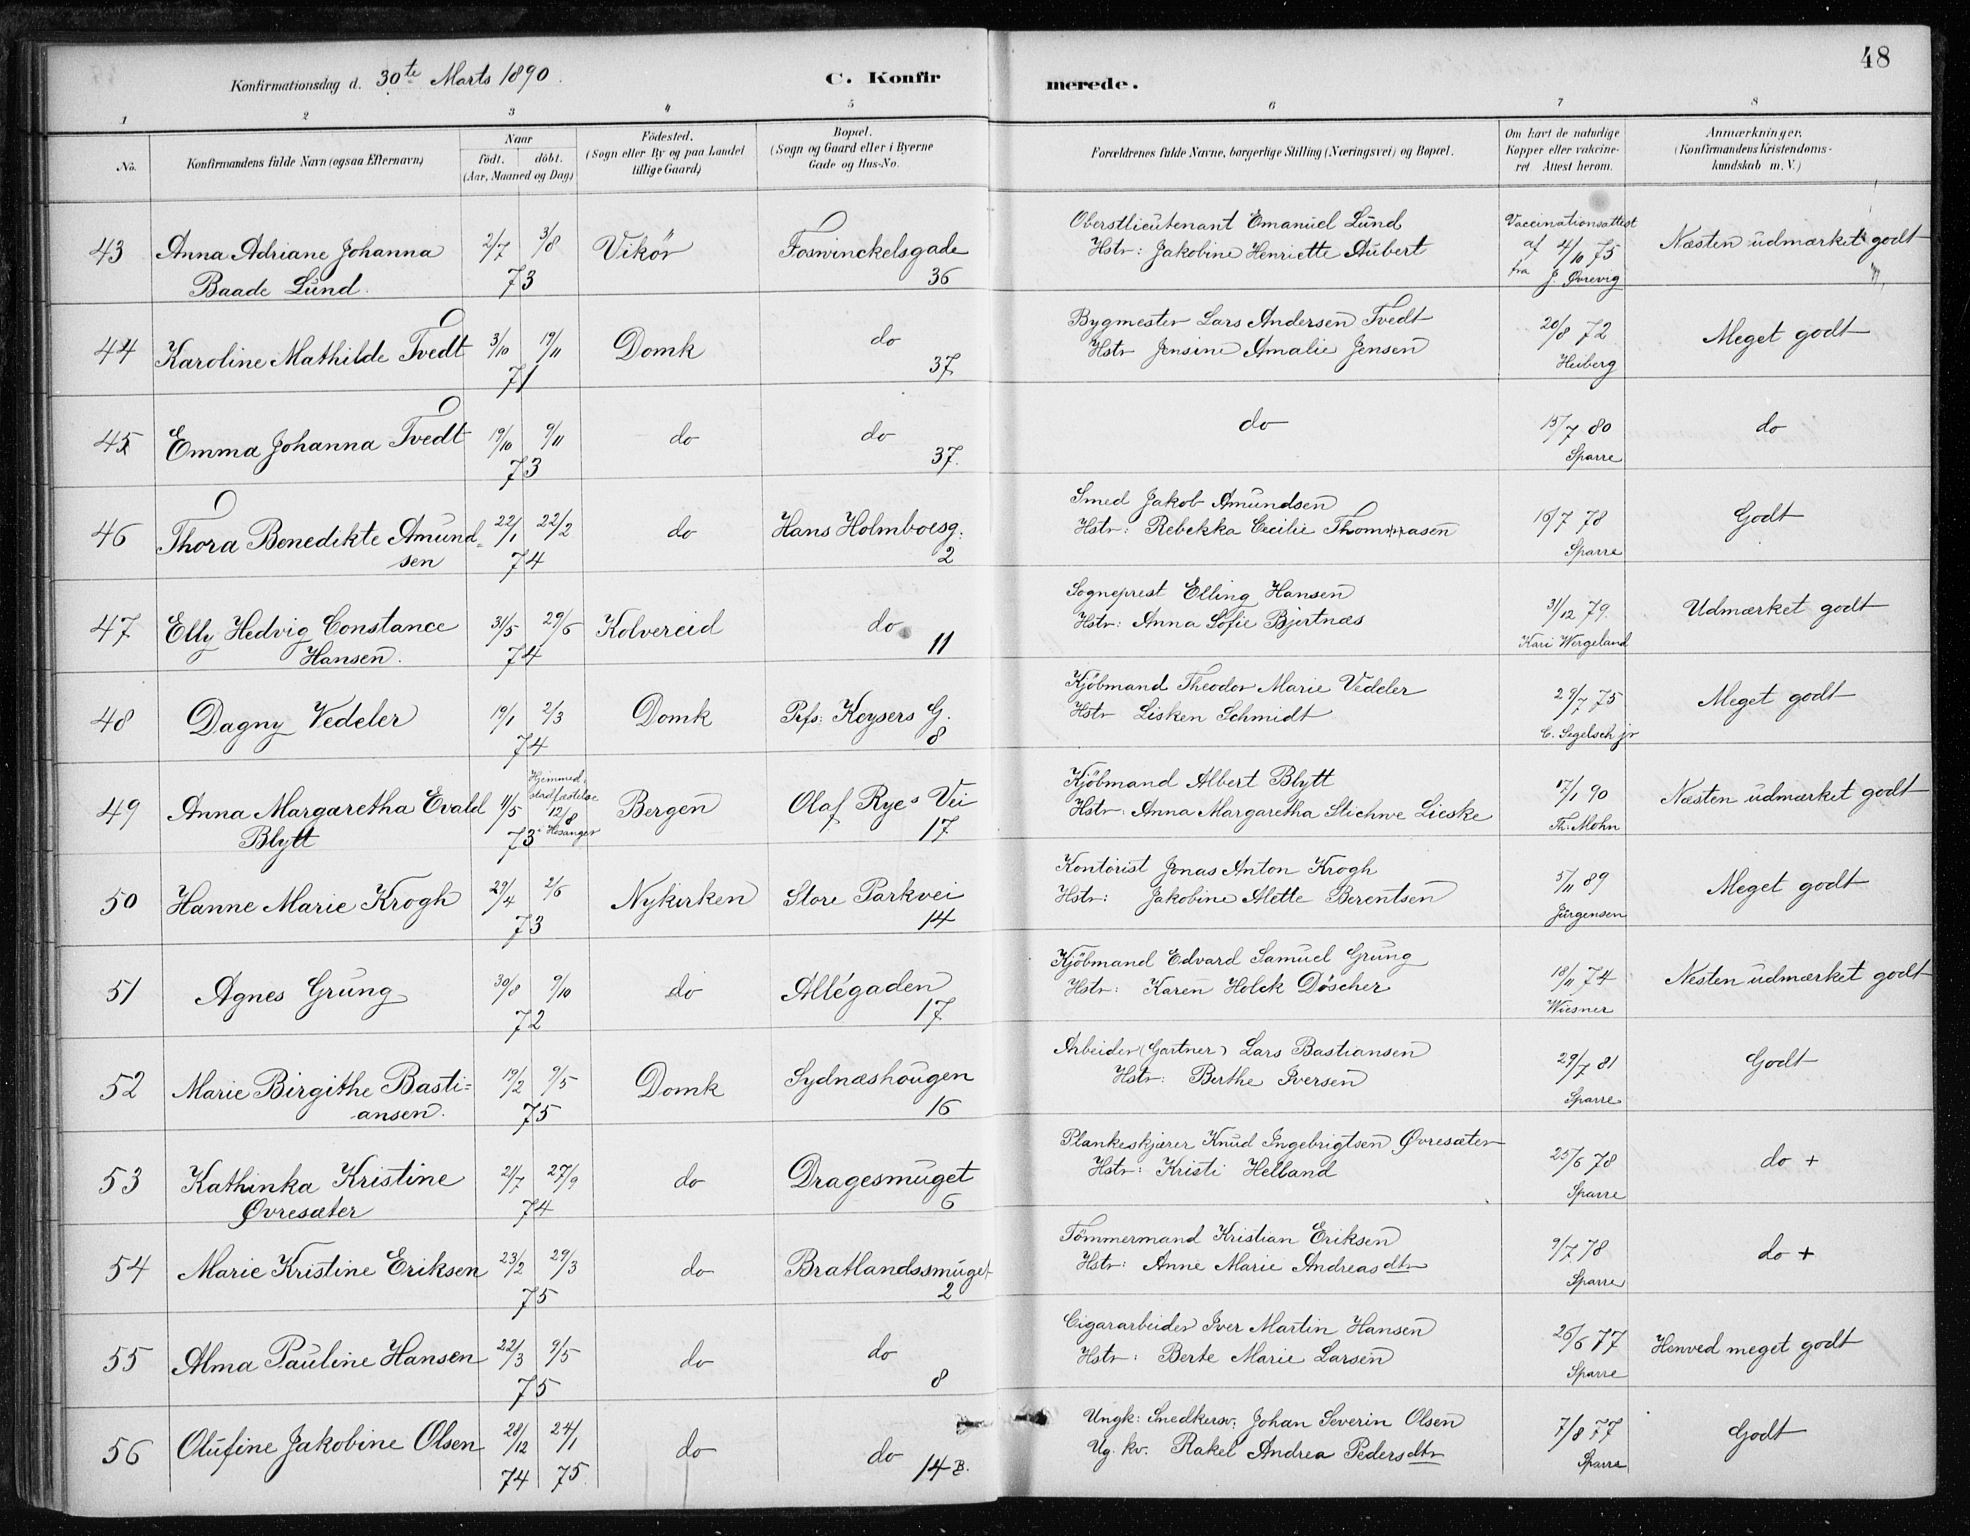 48
Konfirmationsdag d. 30te Marts 1890.
C. Konfirmerede.
1 2 3 4 5 6 7 8
No.
Konfirmandens fulde Navn (ogsaa Efternavn)
Naar
født. døbt.
(Aar, Maaned og Dag)
Fødested.
(Sogn eller By og paa Landet
tillige Gaard)
Bopæl.
(Sogn og Gaard eller i Byerne
Gade og Hus-No.
Forældrenes fulde Navne, borgerlige Stilling (Næringsvei) og Bopæl.
Om havt de naturlige
Kopper eller vakcine-
ret Attest herom.
Anmærkninger.
(Konfirmandens Kristendoms-
kundskab m. V.)
43 Anna Adriane Johanna 2/7 3/8 Vikör Foswinckelsgade
Baade Lund. 73 36
Oberstlieutenant Emanuel Lund Vaccinationsattest
Hstr: Jakobine Henriette Aubert af 4/10 75 Næsten udmærket godt
fra J. Ørevig
44 Karoline Mathilde Tvedt 3/10 19/11 Domk do
71 37
Bygmester Lars Andersen Tvedt 20/8 72 Meget godt
Hstr Jensine Amalie Jensen Heiberg
45 Emma Johanna Tvedt 19/10 9/11 do do
73 37.
do 15/7 80 do
Sparre
46 Thora Benedikte Amund- 22/1 22/2 do Hans Holmboesg.
sen 74 2
Smed Jakob Amundsen 16/7 78 Godt
Hstr: Rebekka Cecilie Thommasen Sparre
47 Elly Hedvig Constance 31/5 29/6 Kolvereid do
Hansen. 74 11
Sogneprest Elling Hansen 31/12 79. Udmærket godt
Hstr: Anna Sofie Bjertnæs Kari Wergeland
48 Dagny Vedeler 19/1 2/3 Domk Prfs: Keysers G.
74 8
Kjöbmand Theodor Marie Vedeler 29/7 75 Meget godt
Hstr Lisken Schmidt C. Segelsch jr
49 Anna Margaretha Evald 1/5 Hjemmed. stadfæstelse 12/8 Hosanger Bergen Olaf Ryes Vei
Blytt 73 17
Kjöbmand Albert Blytt 17/1 90 Næsten udmærket godt
Hstr: Anna Margaretha Stichwe Lieske Th: Mohn
50 Hanne Marie Krogh 29/4 2/6 Nykirken Store Parkvei
73 14
Kontorist Jonas Anton Krogh 5/11 89 Meget godt
Hstr: Jakobine Alette Berentsen Jürgensen
51 Agnes Grung 30/8 9/10 do Allégaden
72 17
Kjöbmand Edvard Samuel Grung 18/11 74 Nesten udmærket godt
Hstr: Karen Holck Döscher Wiesner
52 Marie Birgithe Basti= 19/2 9/5 Domk Sydnæshougen
ansen. 75 16
Arbeider (Gartner) Lars Bastiansen 29/7 81 Godt
Hstr: Berthe Iversen Sparre
53 Kathinka Kristine 2/7 27/9 do Dragesmuget
Øvresæter 74 6
Plankeskjærer Knud Ingebrigtsen Øvresæter 25/6 78 do +
Hstr: Kristi Helland Sparre
54 Marie Kristine Eriksen 23/2 29/3 do Bratlandssmuget
75 2
Tömmermand Kristian Eriksen 9/7 78 do +
Hstr: Anne Marie Andreasdtr Sparre
55 Alma Pauline Hansen 22/3 9/5 do do
75 8
Cigararbeider Iver Martin Hansen 26/6 77 Henved meget godt
Hstr: Berte Marie Larsen Sparre
56 Olufine Jakobine Olsen 28/12 24/1 do do
74 75 14 B.
Ungk: Snedkersv: Johan Severin Olsen 7/8 77 Godt
Ug. kv. Rakel Andrea Pedersdtr Sparre